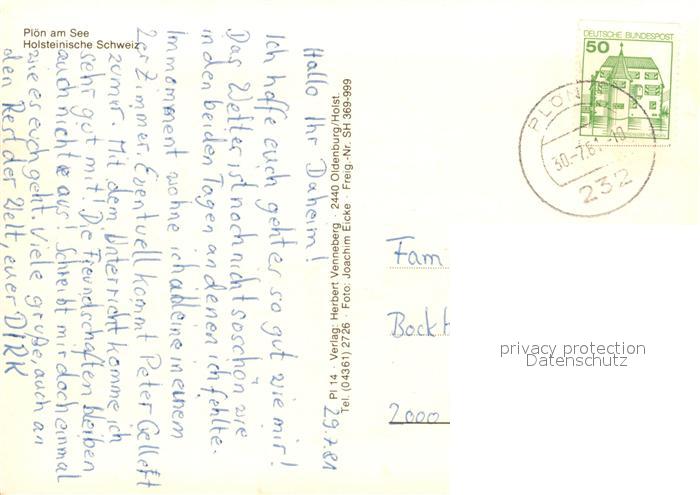 Plön am See
Holsteinische Schweiz
29.7.81
Hallo Ihr Daheim!
Ich hoffe euch geht er so gut wie mir!
Das Wetter ist noch nicht so schön wie
in den beiden Tagen an denen ich fehlte.
Im momment wohne ich alleine in einem
2er Zimmer. Eventuell kommt Peter Gelleft
zu mir. Mit dem Unterricht komme ich
sehr gut mit! Die Freundschaften bleiben
auch nicht aus! Schreibt mir doch einmal
wie es euch geht. Viele grüße, auch an
den Rest der Welt, euer DIRK
Pl 14 · Verlag: Herbert Venneberg · 2440 Oldenburg/Holst.
Tel. (04361) 2726 · Foto: Joachim Eicke · Freig.-Nr. SH 369-999
50 DEUTSCHE BUNDESPOST
PLÖN
30.-7.81.-10
232
Fam
Bockh
2000
privacy protection
Datenschutz